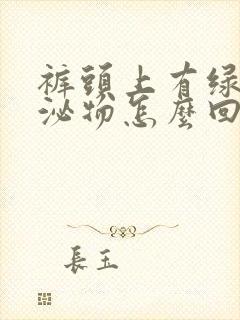 裤頭上有绿
泌物怎麼回
長玉